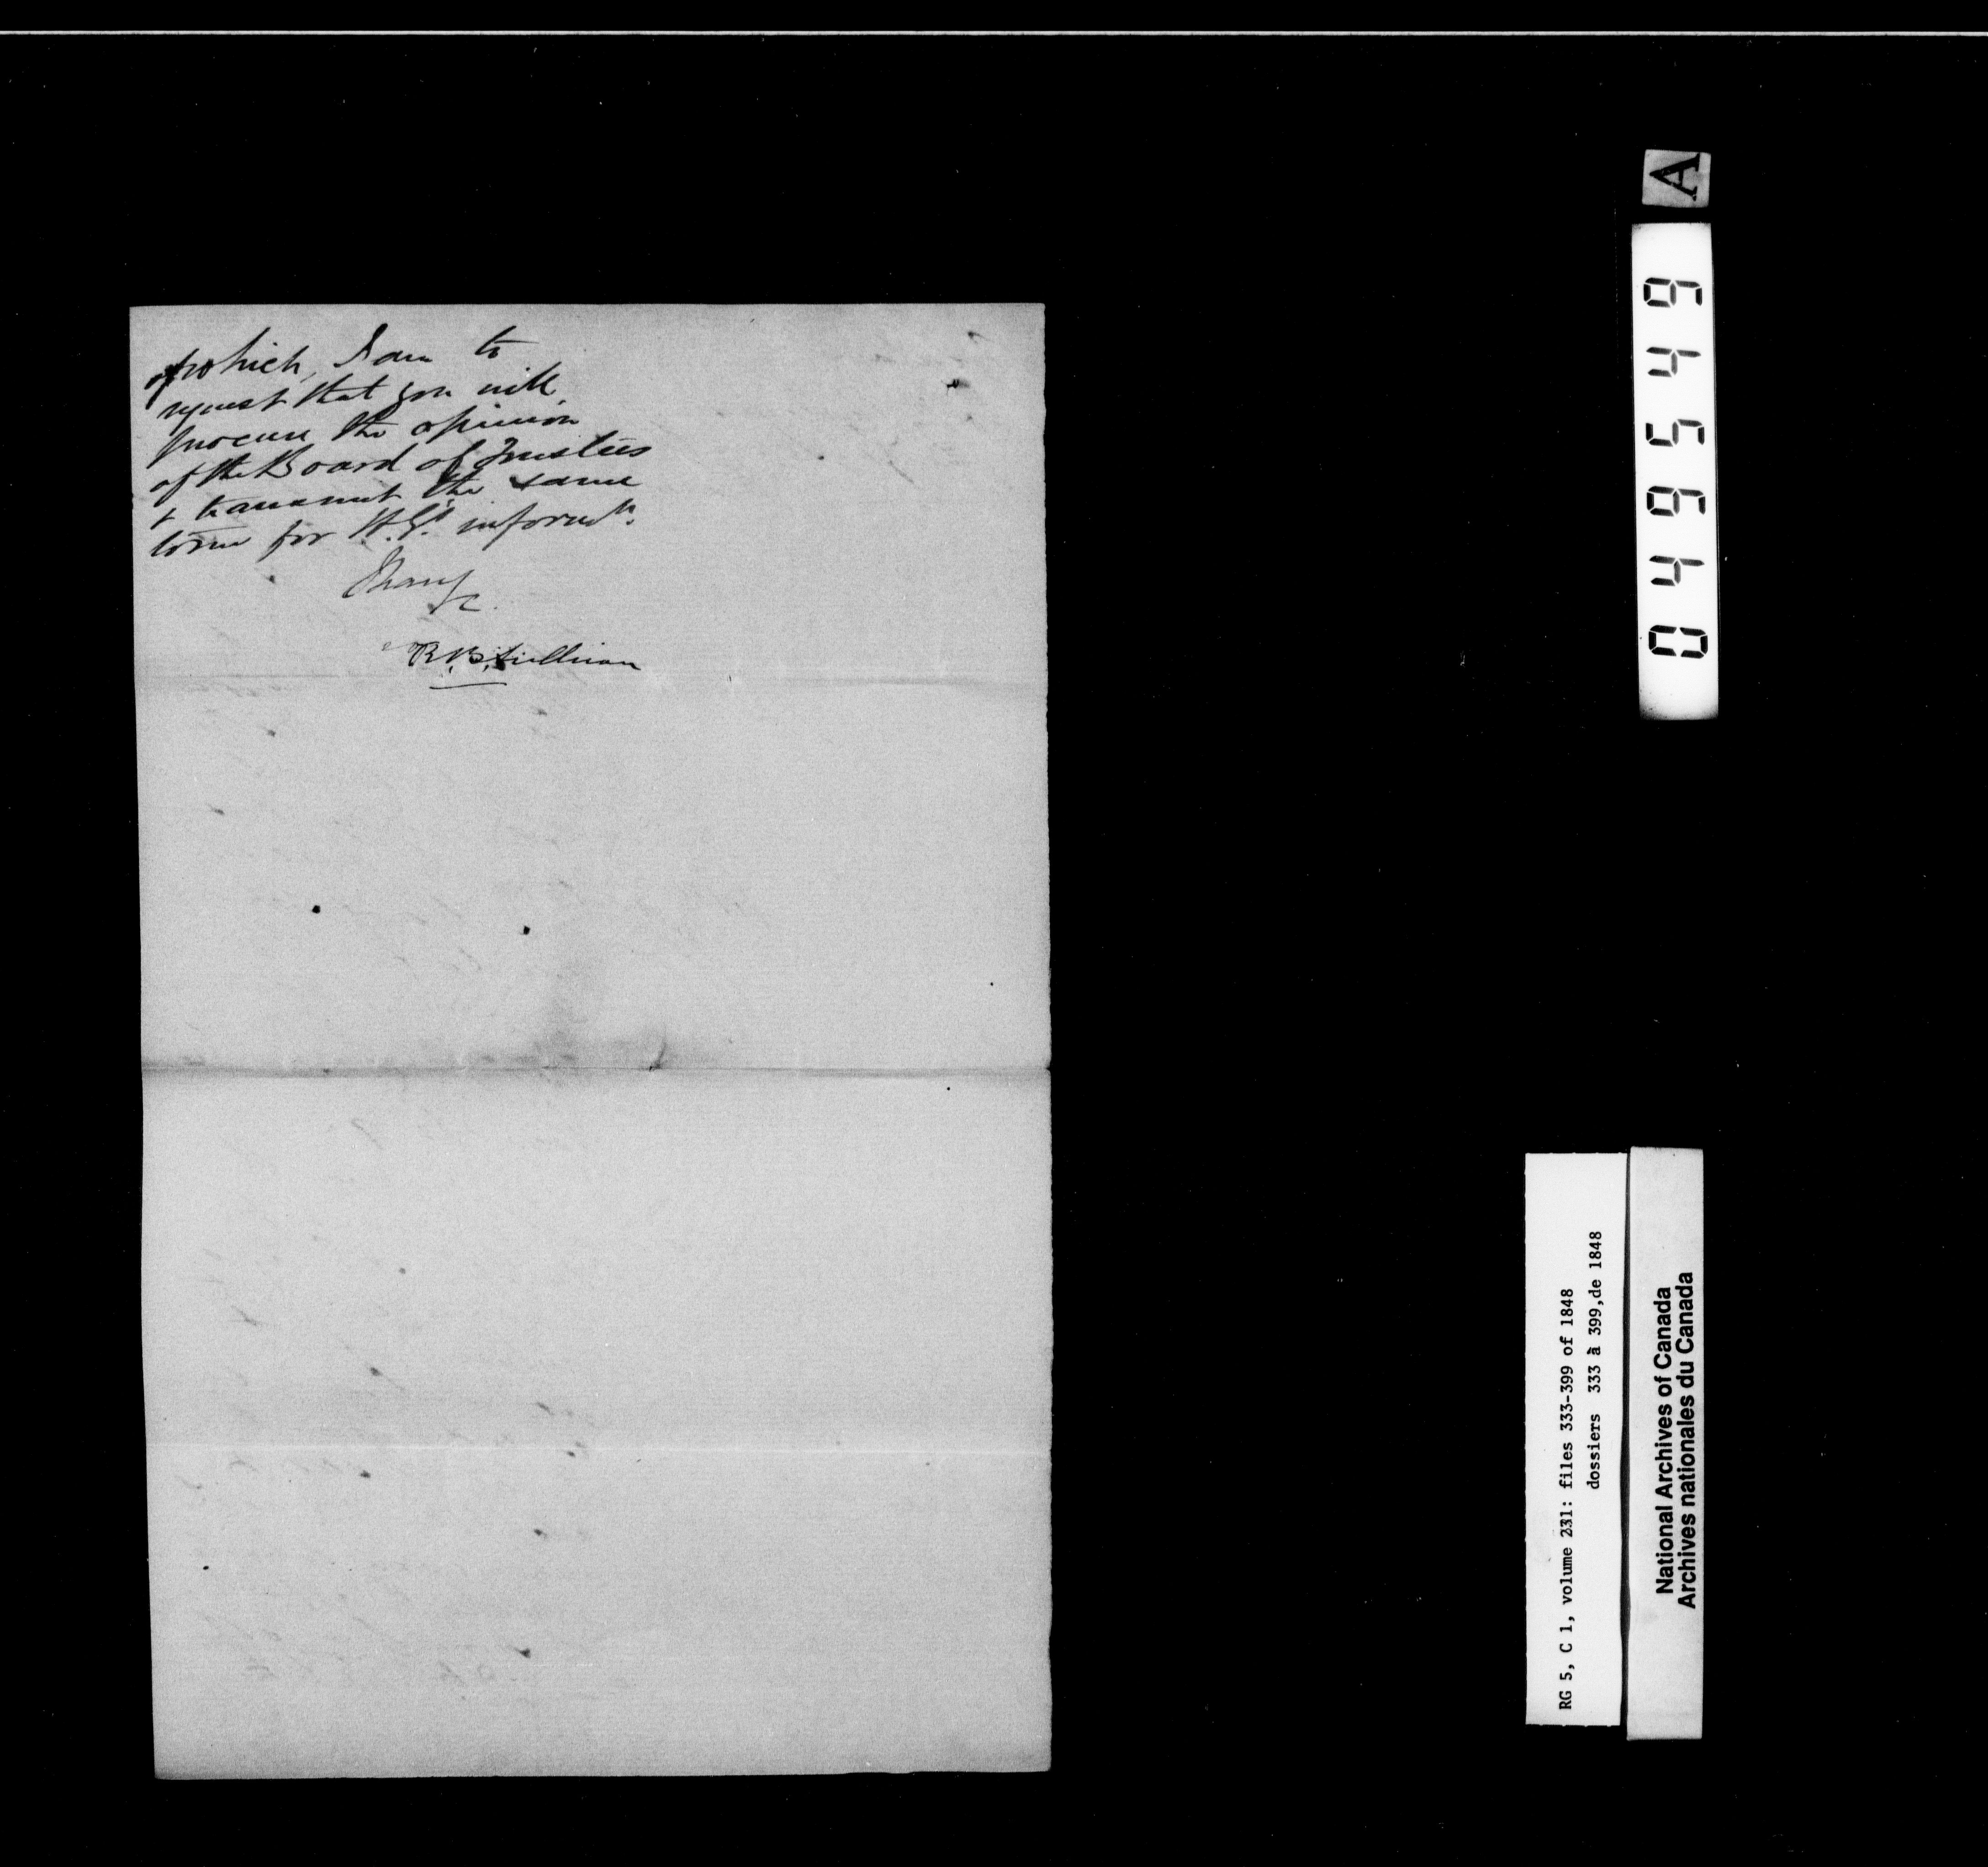 of which, I am to
request that you will
procure the opinion
of the Board of Trustees
& transmit the same
to me for H.E's informn.
I have
&c.
R.B. Sullivan
A
049549
RG 5, C 1, volume 231: files 333-399 of 1848
dossiers 333 à 399,de 1848
National Archives of Canada
Archives nationales du Canada